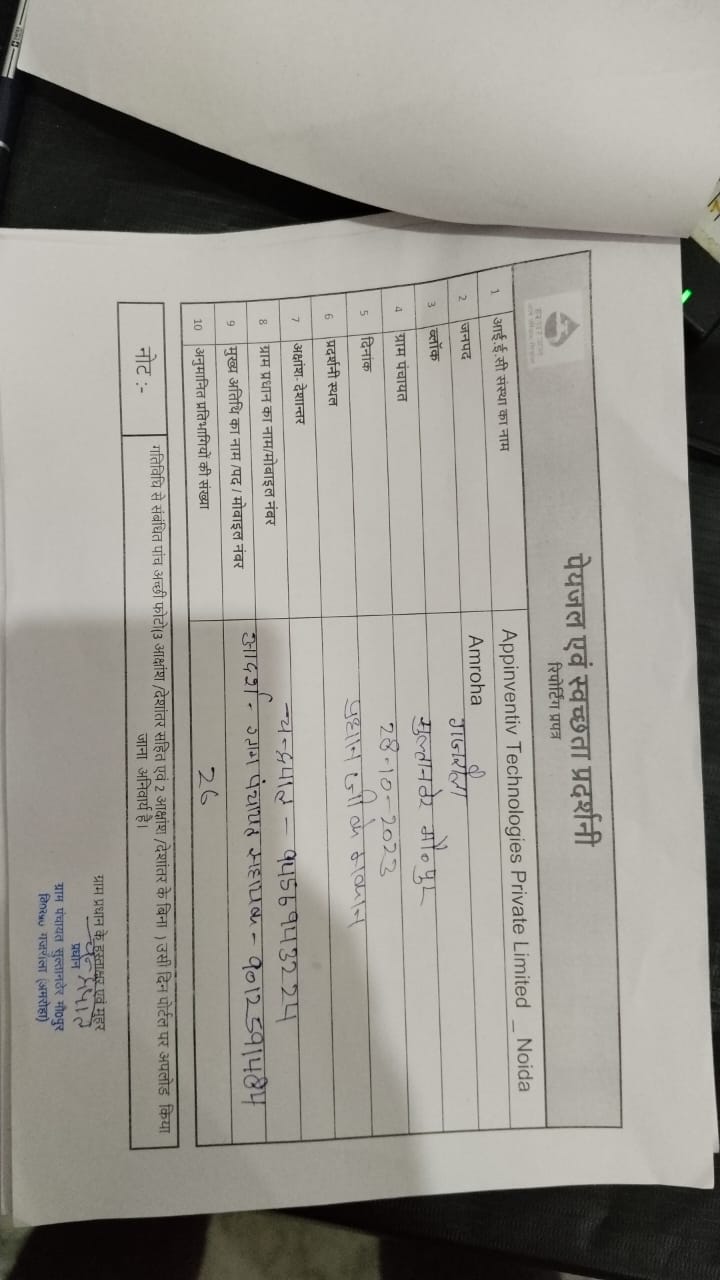 पेयजल एवं स्वच्छता प्रदर्शनी
रिपोर्टिंग प्रपत्र
1 आई.ई.सी संस्था का नाम Appinventiv Technologies Private Limited _ Noida
2 जनपद Amroha
3 ब्लॉक गजरौला
4 ग्राम पंचायत सुल्तानठेर मौ०पुर
5 दिनांक 28-10-2023
6 प्रदर्शनी स्थल प्रधान जी के मकान
7 अक्षांश- देशान्तर
8 ग्राम प्रधान का नाम/मोबाइल नंबर चन्द्रपाल - 9456943224
9 मुख्य अतिथि का नाम /पद / मोबाइल नंबर आदर्श - ग्राम पंचायत सहायक - 9012591484
10 अनुमानित प्रतिभागियों की संख्या 26
नोट :- गतिविधि से संबंधित पांच अच्छी फोटो(3 आक्षांश /देशांतर सहित एवं 2 आक्षांश /देशांतर के बिना ) उसी दिन पोर्टल पर अपलोड किया
जाना अनिवार्य है।
ग्राम प्रधान के हस्ताक्षर एवं मुहर
चन्द्रपाल
प्रधान
ग्राम पंचायत सुल्तानठेर मौ०पुर
वि०ख० गजरौला (अमरोहा)